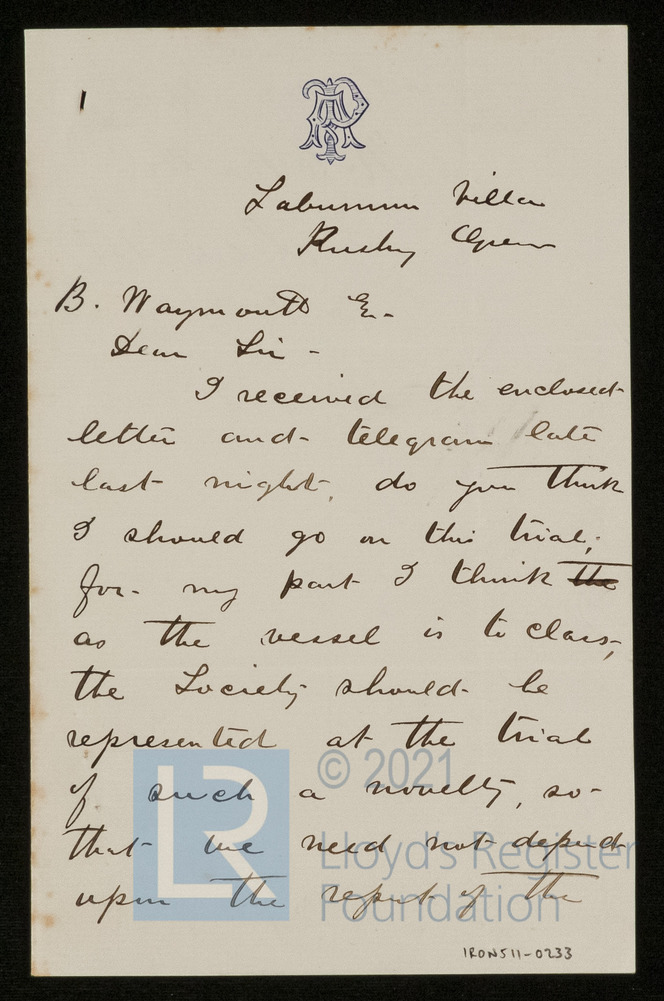 1
Laburnum Villa
Rushy Green
B. Waymouth E.
Dear Sir -
I received the enclosed
letter and telegram late
last night, do you think
I should go on this trial,
for my part I think the
as the vessel is to class,
the Society should be
represented at the trial
of such a novelty, so
that we need not depend
upon the report of the
LR
© 2021
Lloyd's Register
Foundation
IRON511-0233